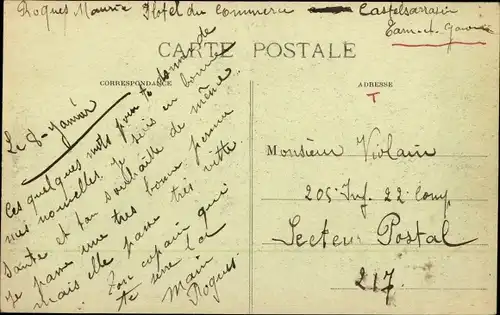 Roques Maurice Hotel du Commerce Castelsarrasin
Tarn et Garonne
CARTE POSTALE
CORRESPONDANCE
ADRESSE
Le 8 Janvier
Ces quelques mots pour te donner de
mes nouvelles. Je suis en bonne
Sante et t'en souhaite de même
Je passe une tres bonne permi
mais elle passe tres vitte.
Ton copain qui
te serre la
Main
Roques
Monsieur Violain
205 Inf. 22 Comp
Secteur Postal
217.